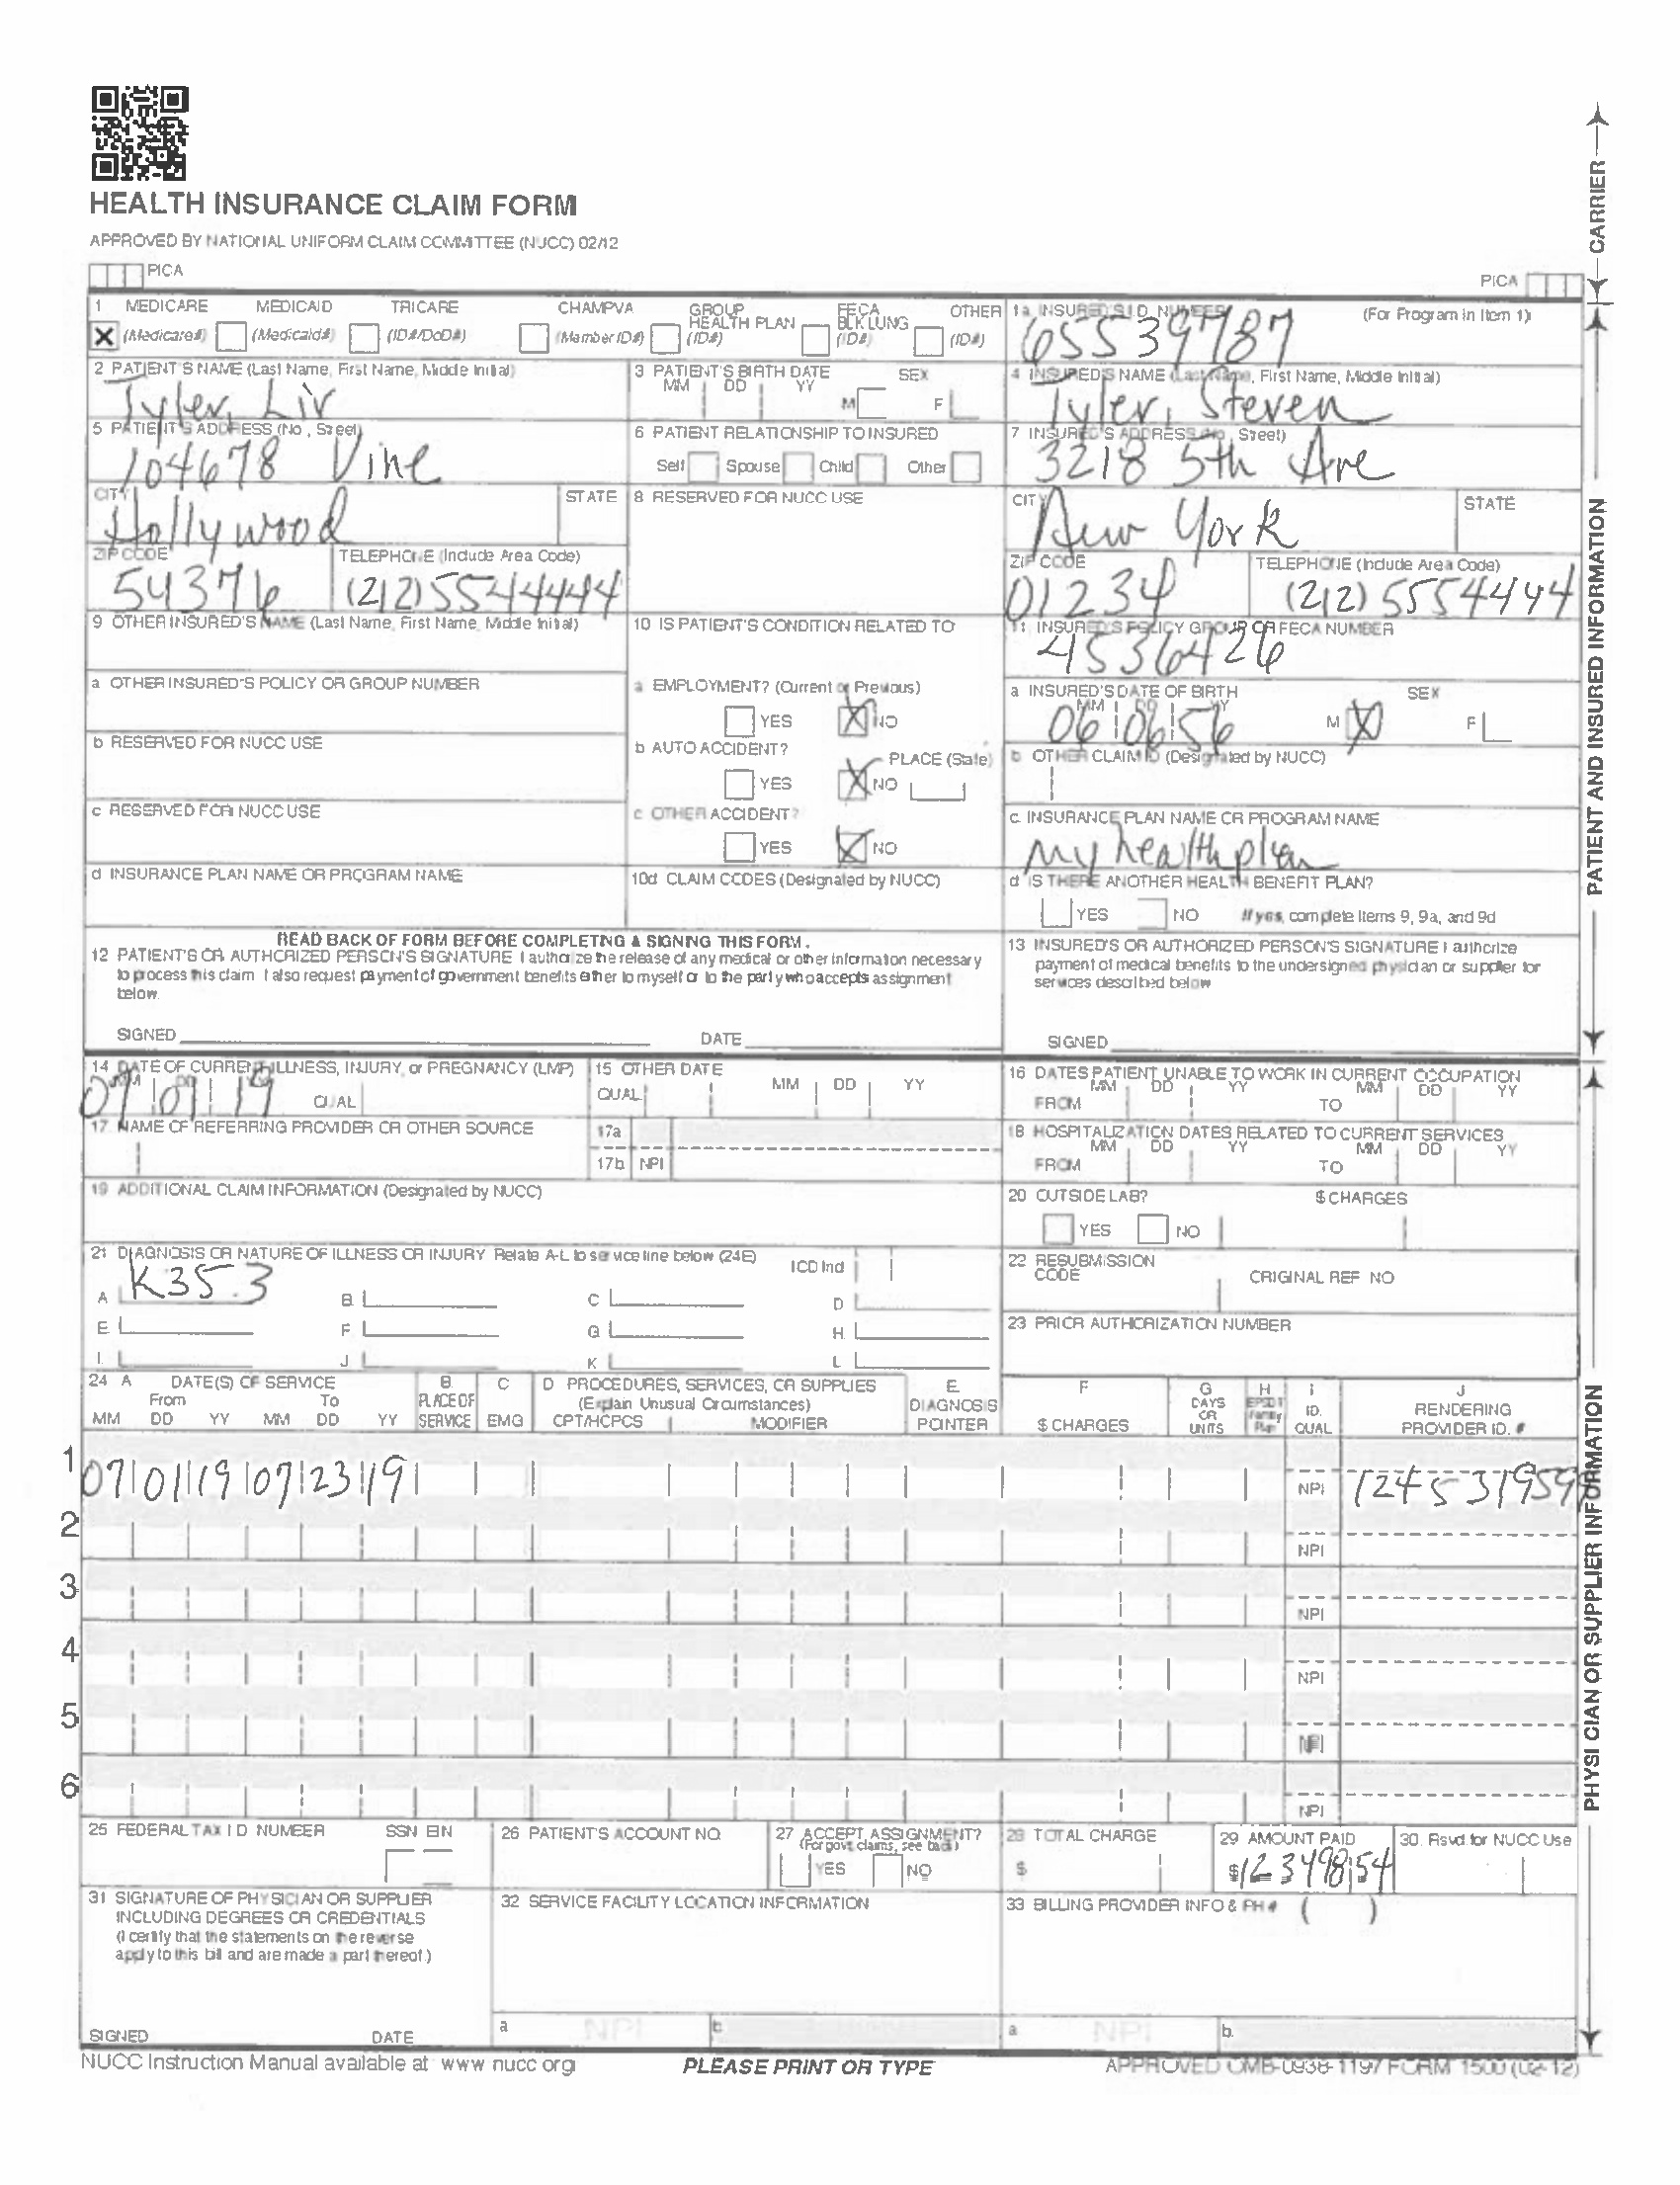 HEALTH INSURANCE CLAIM FORM
APPROVED BY NATIONAL UNIFORM CLAIM COMMITTEE (NUCC) 02/12
PICA
PICA
CARRIER
1 MEDICARE MEDICAID TRICARE CHAMPVA GROUP HEALTH PLAN FECA BLK LUNG OTHER
X (Medicare#) (Medicaid#) (ID#/DoD#) (Member ID#) (ID#) (ID#) (ID#)
1a. INSURED'S I.D. NUMBER (For Program in Item 1)
65539787
2 PATIENT'S NAME (Last Name, First Name, Middle Initial)
Tyler, Liv
3 PATIENT'S BIRTH DATE SEX
MM DD YY M F
4 INSURED'S NAME (Last Name, First Name, Middle Initial)
Tyler, Steven
5 PATIENT'S ADDRESS (No, Street)
104678 Vine
6 PATIENT RELATIONSHIP TO INSURED
Self Spouse Child Other
7 INSURED'S ADDRESS (No, Street)
3218 5th Ave
CITY STATE
Hollywood
8 RESERVED FOR NUCC USE
CITY STATE
New York
ZIP CODE TELEPHONE (Include Area Code)
54376 (212)5544444
ZIP CODE TELEPHONE (Include Area Code)
01234 (212) 5554444
9 OTHER INSURED'S NAME (Last Name, First Name, Middle Initial)
10 IS PATIENT'S CONDITION RELATED TO
11. INSURED'S POLICY GROUP OR FECA NUMBER
4536426
a OTHER INSURED'S POLICY OR GROUP NUMBER
a EMPLOYMENT? (Current or Previous)
YES X NO
a INSURED'S DATE OF BIRTH SEX
MM DD YY
06 06 56 M X F
b RESERVED FOR NUCC USE
b AUTO ACCIDENT? PLACE (State)
YES X NO
b OTHER CLAIM ID (Designated by NUCC)
c RESERVED FOR NUCC USE
c OTHER ACCIDENT?
YES X NO
c. INSURANCE PLAN NAME OR PROGRAM NAME
my health plan
d INSURANCE PLAN NAME OR PROGRAM NAME
10d CLAIM CODES (Designated by NUCC)
d IS THERE ANOTHER HEALTH BENEFIT PLAN?
YES NO If yes, complete items 9, 9a, and 9d
READ BACK OF FORM BEFORE COMPLETING & SIGNING THIS FORM.
12 PATIENT'S OR AUTHORIZED PERSON'S SIGNATURE I authorize the release of any medical or other information necessary
to process this claim I also request payment of government benefits either to myself or to the party who accepts assignment
below.
SIGNED DATE
13 INSURED'S OR AUTHORIZED PERSON'S SIGNATURE I authorize
payment of medical benefits to the undersigned physician or supplier for
services described below
SIGNED
PATIENT AND INSURED INFORMATION
14 DATE OF CURRENT ILLNESS, INJURY, or PREGNANCY (LMP)
MM DD YY
07 01 19 QUAL
15 OTHER DATE
QUAL MM DD YY
16 DATES PATIENT UNABLE TO WORK IN CURRENT OCCUPATION
MM DD YY MM DD YY
FROM TO
17. NAME OF REFERRING PROVIDER OR OTHER SOURCE
17a
17b NPI
18 HOSPITALIZATION DATES RELATED TO CURRENT SERVICES
MM DD YY MM DD YY
FROM TO
19 ADDITIONAL CLAIM INFORMATION (Designated by NUCC)
20 OUTSIDE LAB? $ CHARGES
YES NO
21 DIAGNOSIS OR NATURE OF ILLNESS OR INJURY Relate A-L to service line below (24E) ICD Ind
A K35.3 B. C D
E F. G H.
I. J K L
22 RESUBMISSION
CODE ORIGINAL REF NO
23 PRIOR AUTHORIZATION NUMBER
24 A DATE(S) OF SERVICE B. C D PROCEDURES, SERVICES, OR SUPPLIES E. F G H I J
From To PLACE OF (Explain Unusual Circumstances) DIAGNOSIS DAYS OR UNITS EPSDT Family Plan ID. RENDERING
MM DD YY MM DD YY SERVICE EMG CPT/HCPCS MODIFIER POINTER $ CHARGES QUAL PROVIDER ID. #
1 07 01 19 07 23 19 NPI 1245319599
2 NPI
3 NPI
4 NPI
5 NPI
6 NPI
25 FEDERAL TAX I D NUMBER SSN EIN
26 PATIENT'S ACCOUNT NO.
27 ACCEPT ASSIGNMENT?
(For govt. claims, see back)
YES NO
28 TOTAL CHARGE
$
29 AMOUNT PAID
$ 123498 54
30. Rsvd for NUCC Use
31 SIGNATURE OF PHYSICIAN OR SUPPLIER
INCLUDING DEGREES OR CREDENTIALS
(I certify that the statements on the reverse
apply to this bill and are made a part thereof.)
SIGNED DATE
32 SERVICE FACILITY LOCATION INFORMATION
a NPI b
33 BILLING PROVIDER INFO & PH # ( )
a NPI b.
PHYSICIAN OR SUPPLIER INFORMATION
NUCC Instruction Manual available at www nucc org
PLEASE PRINT OR TYPE
APPROVED OMB-0938-1197 FORM 1500 (02-12)